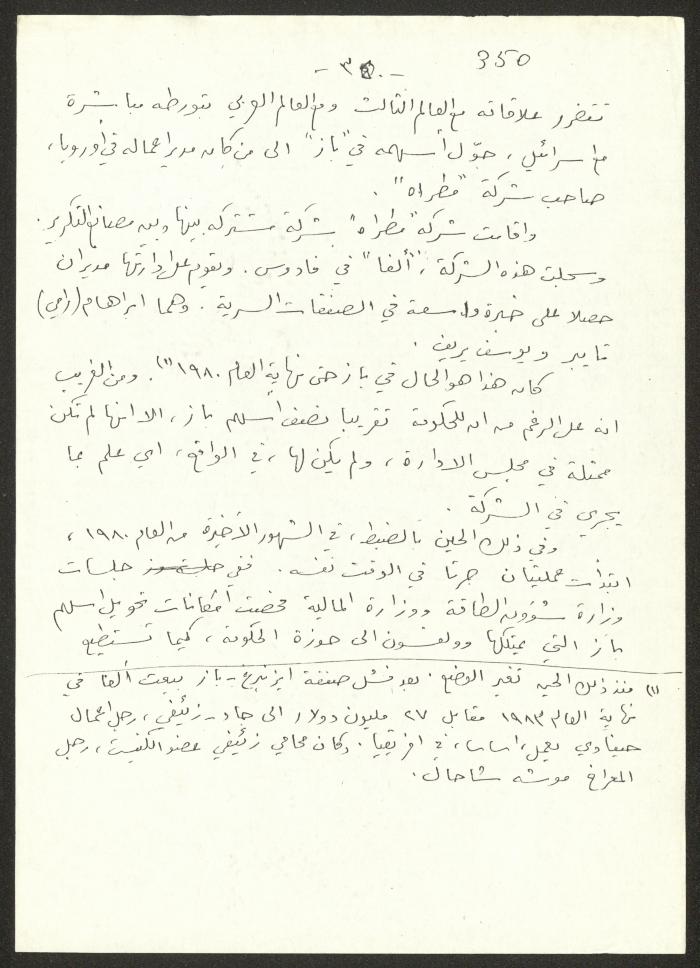 350
-٣٥٠-
تتضرر علاقاته مع العالم الثالث ومع العالم العربي بتورطه مباشرة
مع اسرائيل، حوّل أسهمه في "باز" الى من كان مدير اعماله في أوروبا،
صاحب شركة "مطراه".
واقامت شركة "مطراه" شركة مشتركة بينها وبين مصانع التكرير.
وسجلت هذه الشركة، "ألفا" في فادوس. ويقوم على إدارتها مديران
حصلا على خبرة واسعة في الصفقات السرية. وهما ابراهام (رامي)
تايبر ويوسف يريف.
كان هذا هو الحال في باز حتى نهاية العام ١٩٨٠(١). ومن الغريب
انه على الرغم من ان للحكومة تقريبا نصف اسهم باز، الا انها لم تكن
ممثلة في مجلس الادارة، ولم يكن لها، في الواقع، اي علم بما
يجري في الشركة.
وفي ذلك الحين بالضبط، في الشهور الأخيرة من العام ١٩٨٠،
ابتدأت عمليتان جرتا في الوقت نفسه. ففي جلسات
وزارة شؤون الطاقة ووزارة المالية فحصت امكانات تحويل اسهم
باز التي يمتلكها وولفسون الى حوزة الحكومة، كيما تستطيع
(١) منذ ذلك الحين تغير الوضع. بعد فشل صفقة ايزنبرغ - باز بيعت ألفا في
نهاية العام ١٩٨٣ مقابل ٢٧ مليون دولار الى جاد - زئيفي، رجل اعمال
حيفاوي يعمل، اساسا، في افريقيا. وكان محامي زئيفي عضو الكنيست، رجل
المعراخ موشه شاحال.